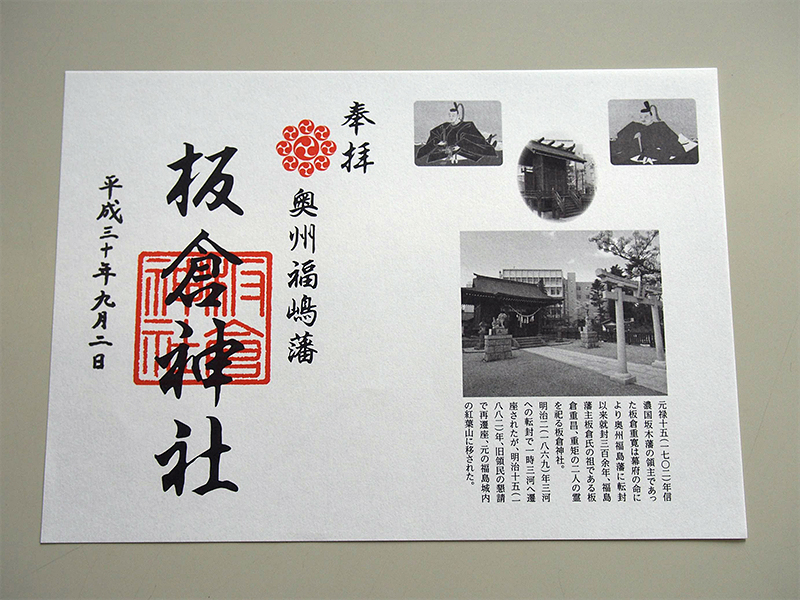 奉拝
奥州福嶋藩
板倉神社
板倉神社
平成三十年九月二日
元禄十五(一七〇二)年信
濃国坂木藩の領主であっ
た板倉重寛は幕府の命に
より奥州福島藩に転封
以来就封三百余年、福島
藩主板倉氏の祖である板
倉重昌、重矩の二人の霊
を祀る板倉神社。
明治二(一八六九)年三河
への転封で一時三河へ遷
座されたが、明治十五(一
八八二)年、旧領民の懇請
で再遷座、元の福島城内
の紅葉山に移された。